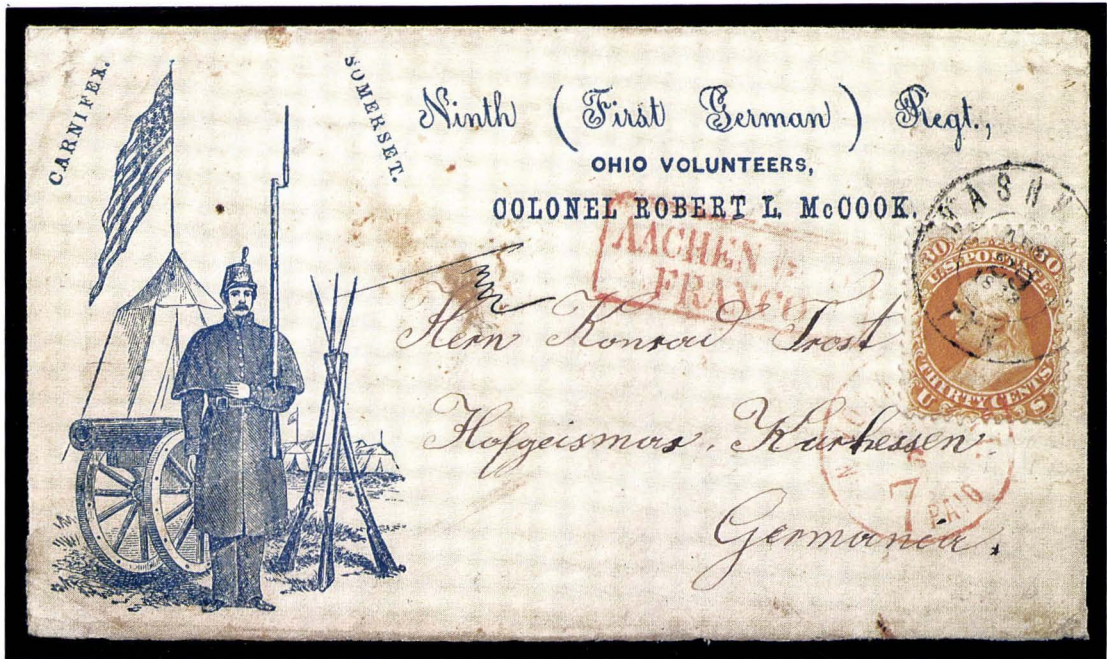 CARNIFEX.
SOMERSET.
Ninth (First German) Regt.,
OHIO VOLUNTEERS,
COLONEL ROBERT L. McCOOK.
AACHEN
FRANCO
WASH
30 30
U.S. POSTAGE
THIRTY CENTS
U S
Hern Konrad Trost
Hofgeismar. Kurhessen.
7
PAID
Germania.